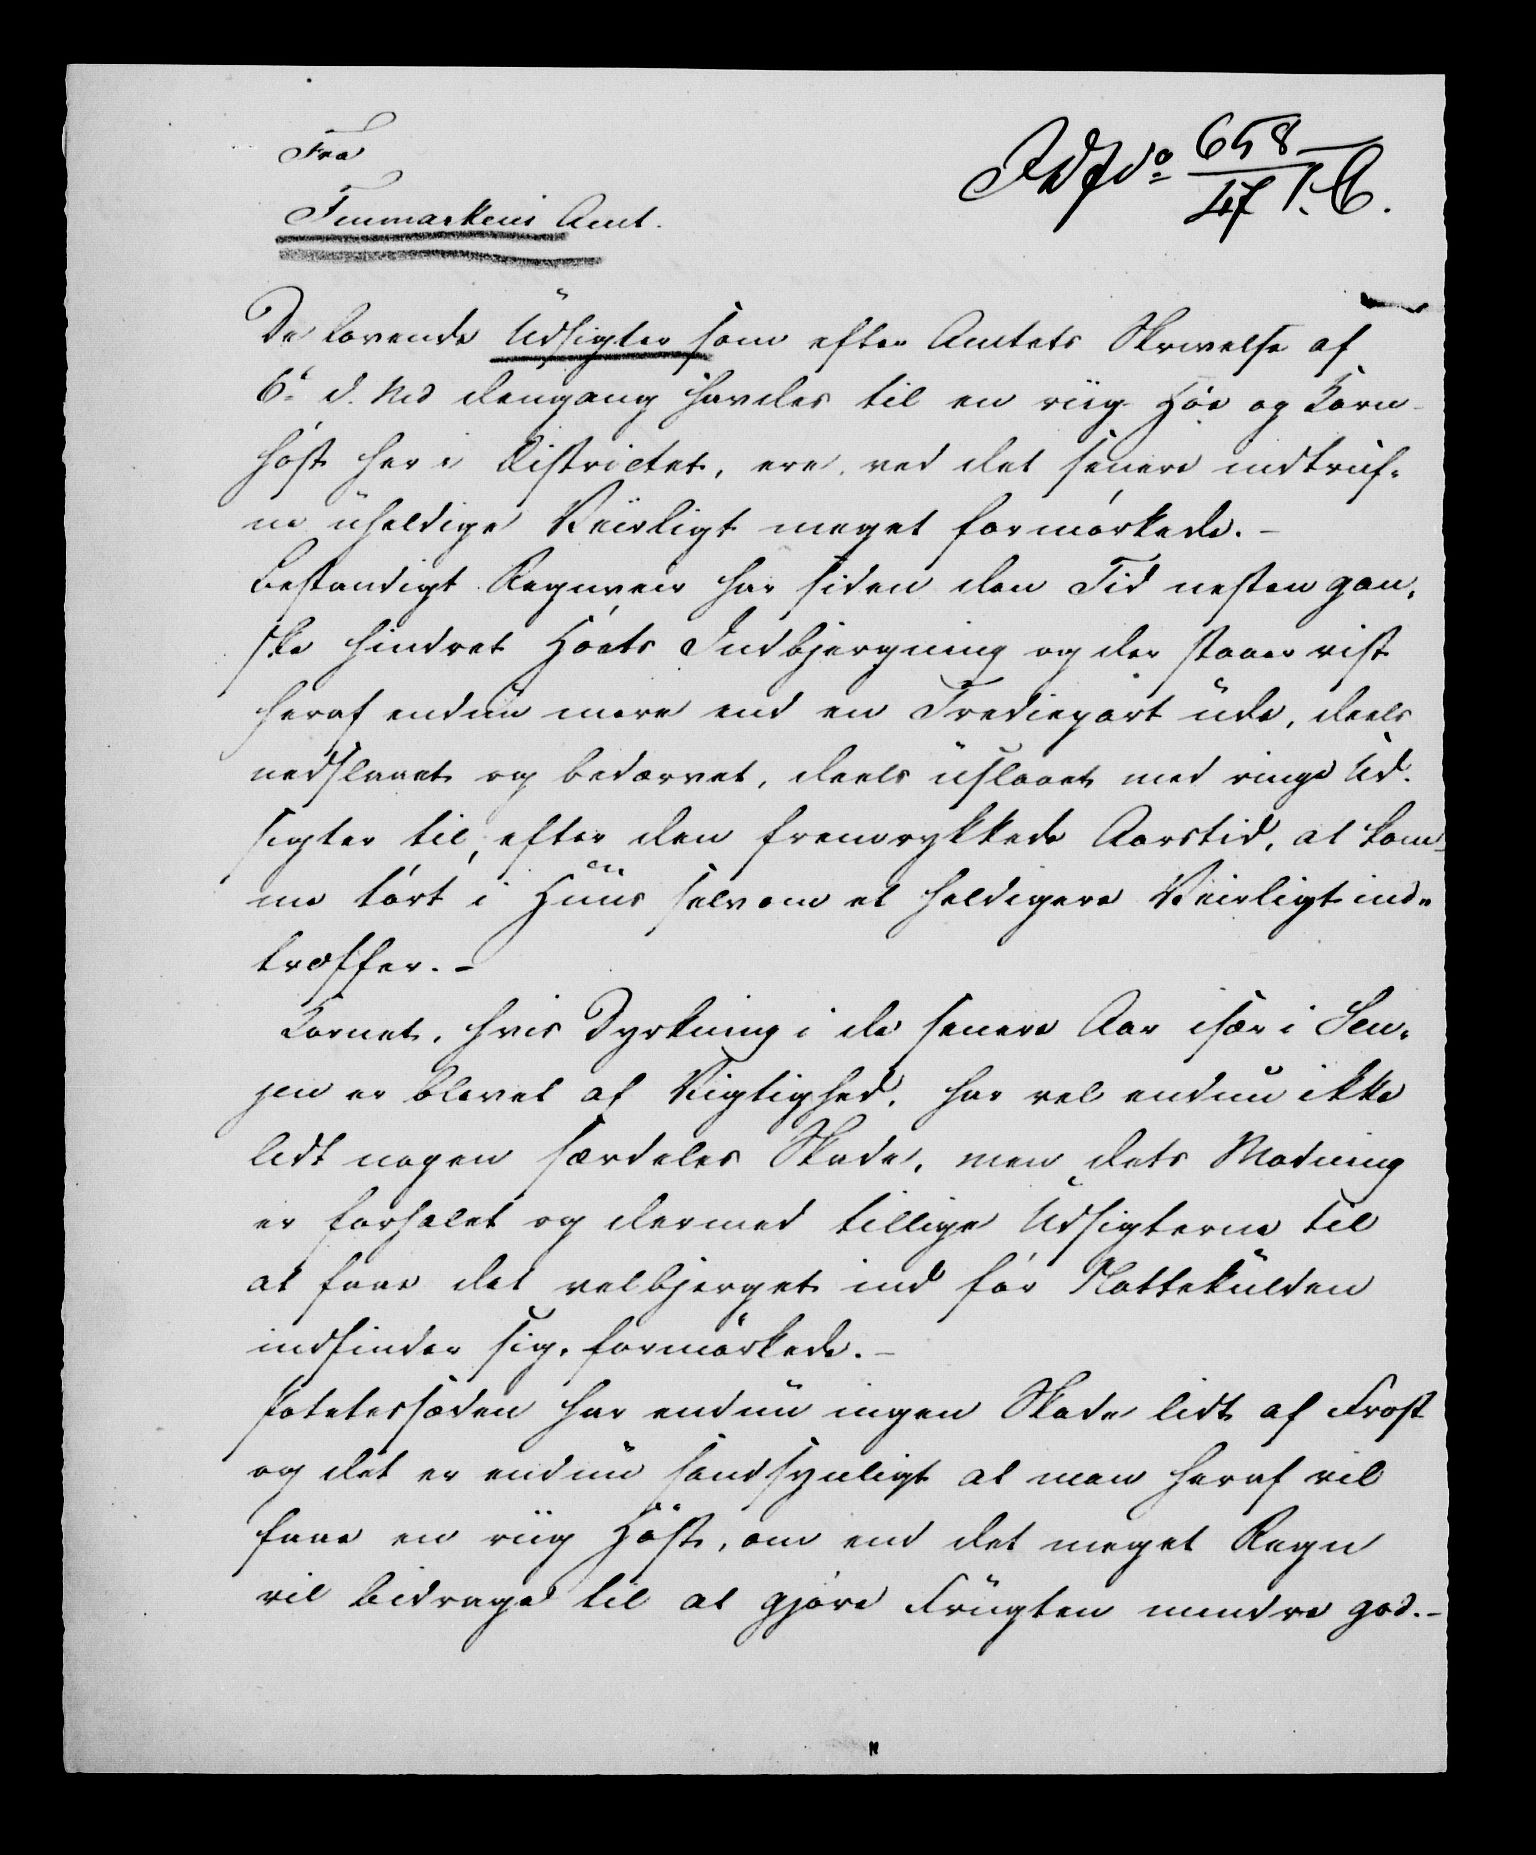 Fra
Finmarkens Amt.
658
47
De lovende Udsigter som efter Amtets Skrivelse af
6e d. Md dengang havdes til en riig Höe og Korn-
höst her i Districtet, ere ved det senere indtruf-
ne üheldige Veirligt meget formörkede. -
Bestandigt Regnveir har siden den Tid nesten gan-
ske hindret Höets Indbjergning og der staaer vist
heraf endnu mere end en Trediepart üde, deels
nedslaaet og bedærvet, deels üslaaet med ringe Ud-
sigter til, efter den fremrykkede Aarstid, at kom-
me tört i Hüüs selv om et heldigere Veirligt ind-
træffer. -
Kornet, hvis Dyrkning i de senere Aar især i Sen-
jen er blevet af Vigtighed, har vel endnu ikke
lidt nogen særdeles Skade, men dets Modning
er forhalet og dermed tillige Udsigterne til
at faae det velbjerget ind för Nattekülden
indfinder sig, formörkede. -
Potetessæden har endnü ingen Skade lidt af Frost
og det er endnü sandsynligt at man heraf vil
faae en riig Höst, om end det meget Regn
vil bidrage til at gjöre Frügten mindre god. -